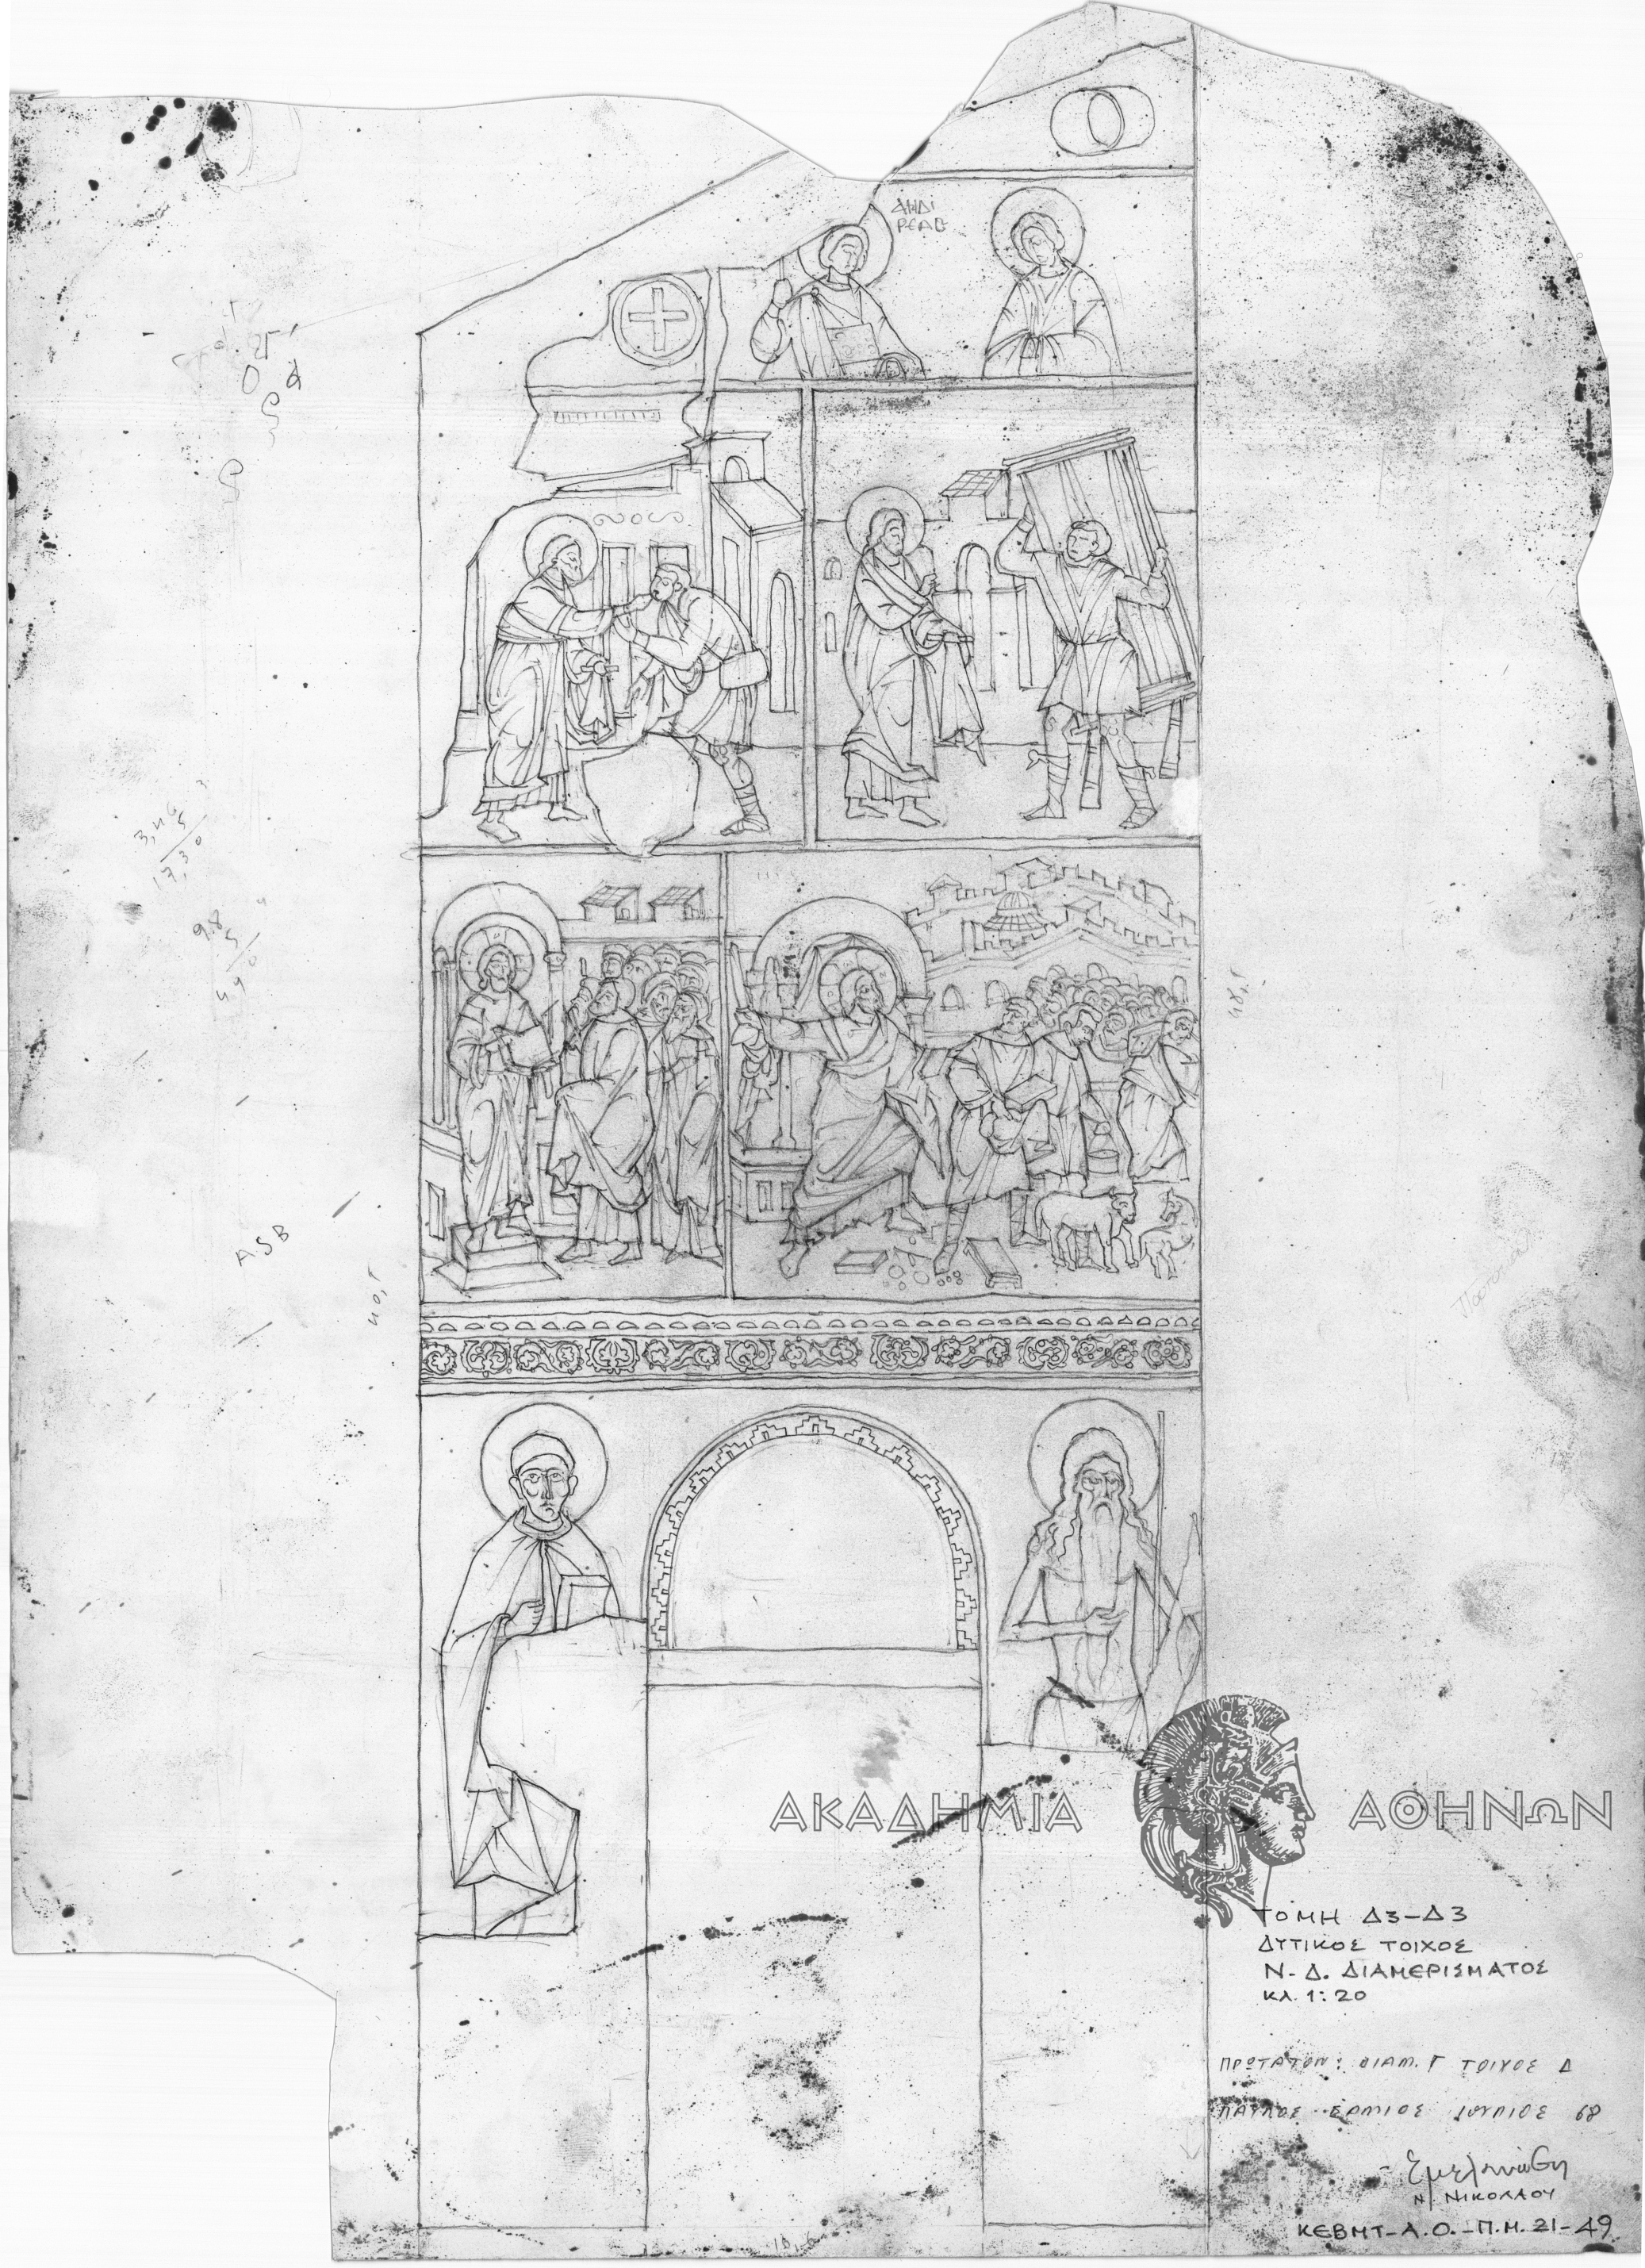 ΑΝΔ
ΡΕΑC
ASB
40,Γ
ΑΚΑΔΗΜΙΑ ΑΘΗΝΩΝ
ΤΟΜΗ Δ3-Δ3
ΔΥΤΙΚΟΣ ΤΟΙΧΟΣ
Ν-Δ. ΔΙΑΜΕΡΙΣΜΑΤΟΣ
ΚΛ. 1:20
ΠΡΩΤΑΤΟΝ: ΔΙΑΜ. Γ ΤΟΙΧΟΣ Δ
ΠΑΥΛΟΣ ΕΡΜΙΟΣ ΙΟΥΛΙΟΣ 68
Ν. ΝΙΚΟΛΑΟΥ
ΚΕΒΜΤ-Α.Ο.-Π.Μ. 21-49